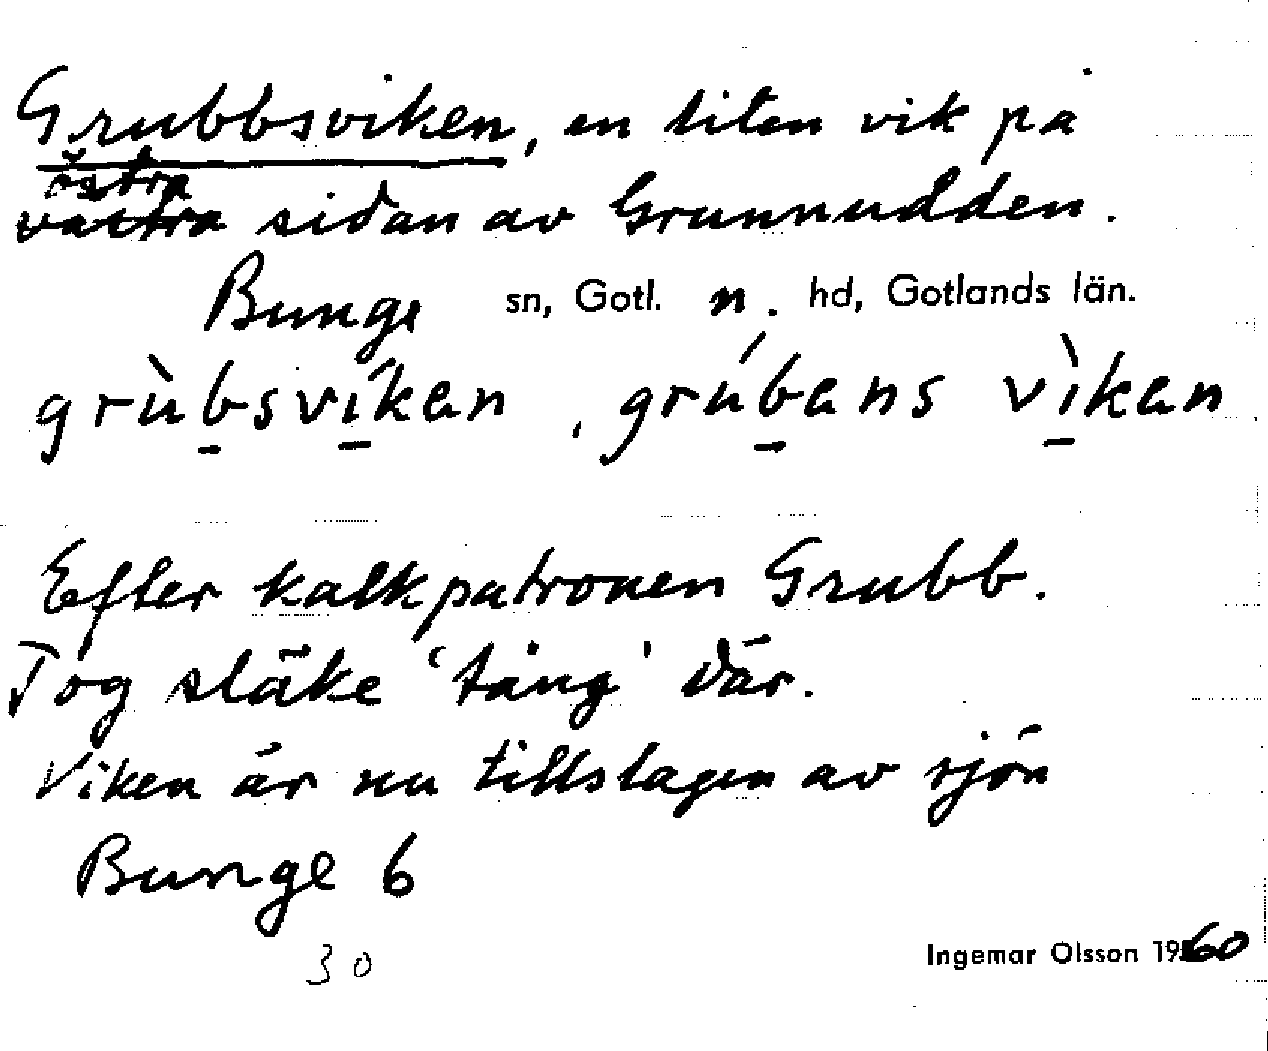 Grubbsviken, en liten vik på
östra
västra sidan av Grunnudden.
Bunge sn, Gotl. n. hd, Gotlands län.
grùbsvíkan, grúbans vìkan
Efter kalkpatronen Grubb.
Tog släke 'tång' där.
Viken är nu tillslagen av sjön
Bunge 6
30
Ingemar Olsson 1960